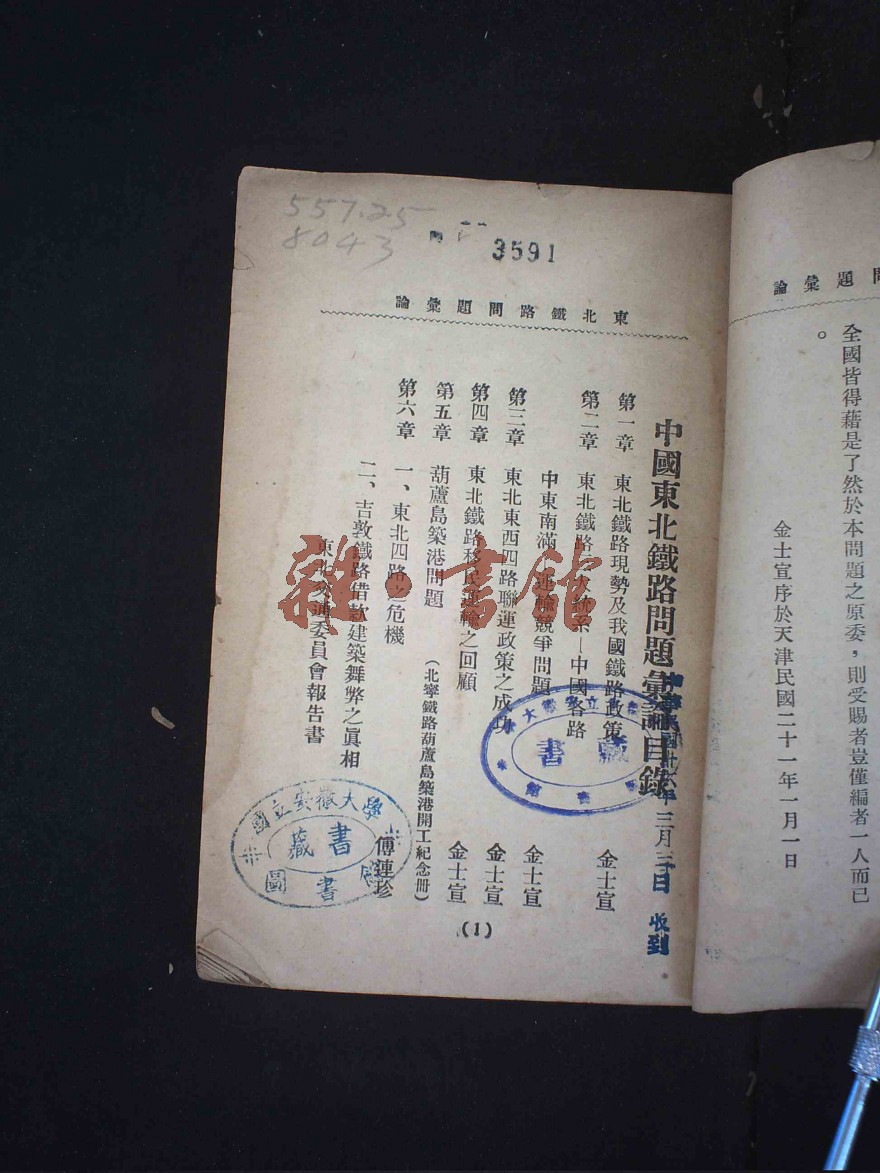 全國皆得藉是了然於本問題之原委，則受賜者豈僅編者一人而已
。
金士宣序於天津民國二十一年一月一日
557.25
8043
3591
東北鐵路問題彙論
中國東北鐵路問題彙論目錄
第一章 東北鐵路現勢及我國鐵路政策 金士宣
第二章 東北鐵路大系統─中國各路
中東南滿 運輸競爭問題 金士宣
第三章 東北東西四路聯運政策之成功 金士宣
第四章 東北鐵路移民運輸之回顧 金士宣
第五章 葫蘆島築港問題 (北寧鐵路葫蘆島築港開工紀念册)
第六章 一、東北四路之危機 傅鍾珍
二、吉敦鐵路借款建築舞弊之眞相
東北交通委員會報告書
(1)
三月三日 收到
國立安徽大學
藏書
圖書館
藏書
雜·書館